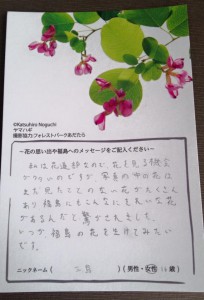 ©Katsuhiro Noguchi
ヤマハギ
撮影協力フォレストパークあだたら
～花の思い出や福島へのメッセージをご記入ください～
私は花道部なので、花を見る機会
が多いのですが、写真の中の花は
まだ見たことのない花がたくさん
あり福島にもこんなにきれいな花
があるんだと驚かされました。
いつか福島の花を生けてみたい
です。
ニックネーム（ ）（男性・女性 歳）